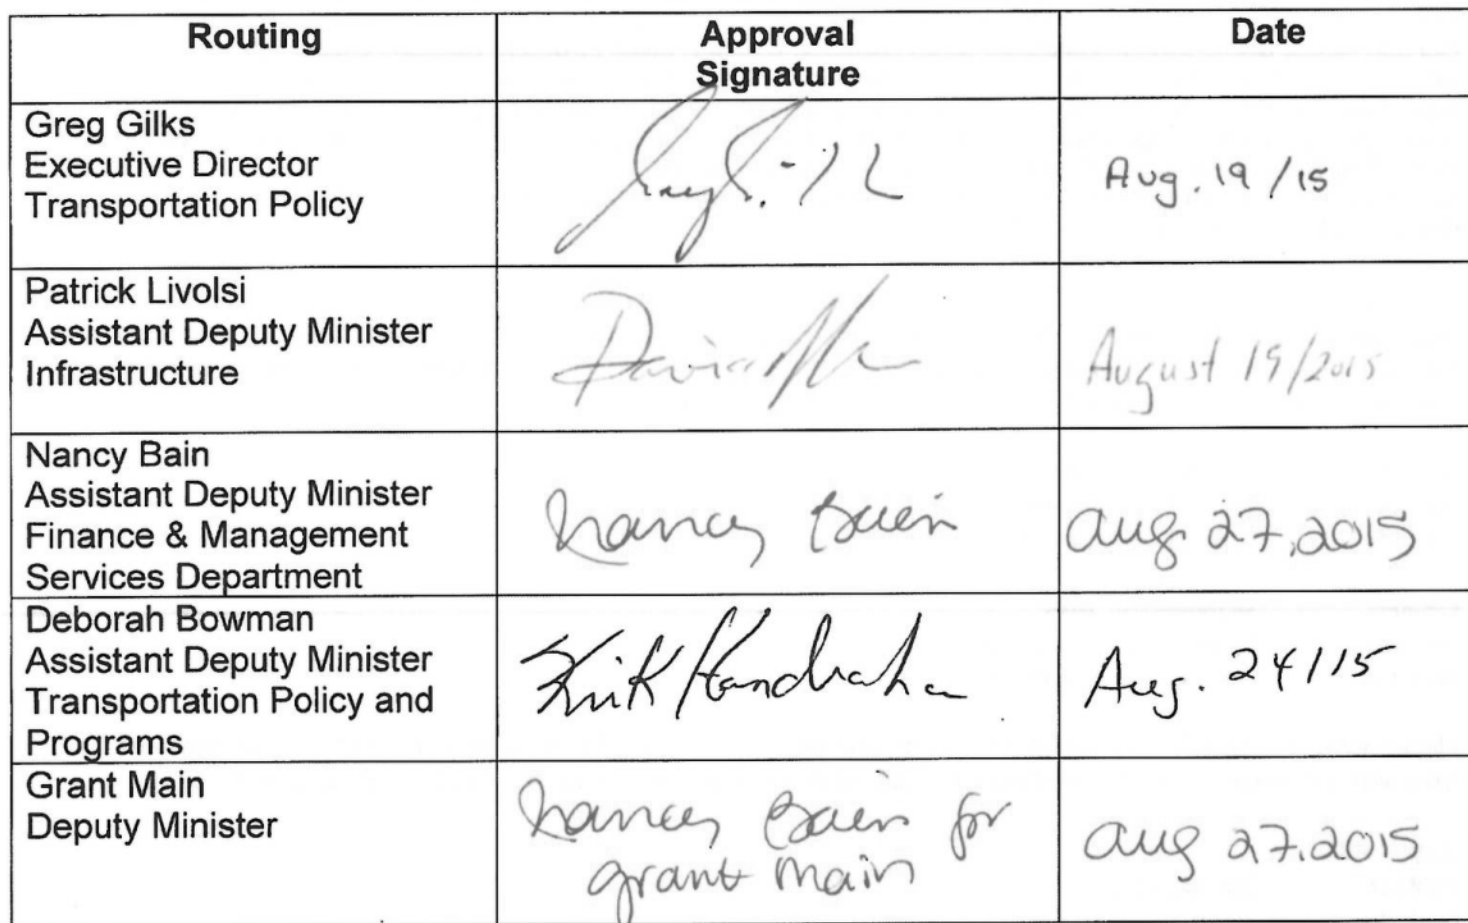 Routing
Approval
Signature
Date
Greg Gilks
Executive Director
Transportation Policy
Aug. 19/15
Patrick Livolsi
Assistant Deputy Minister
Infrastructure
August 19/2015
Nancy Bain
Assistant Deputy Minister
Finance & Management
Services Department
Nancy Bain
Aug 27, 2015
Deborah Bowman
Assistant Deputy Minister
Transportation Policy and
Programs
Kirk Handrahan
Aug. 24/15
Grant Main
Deputy Minister
Nancy Bain for
Grant Main
Aug 27.2015